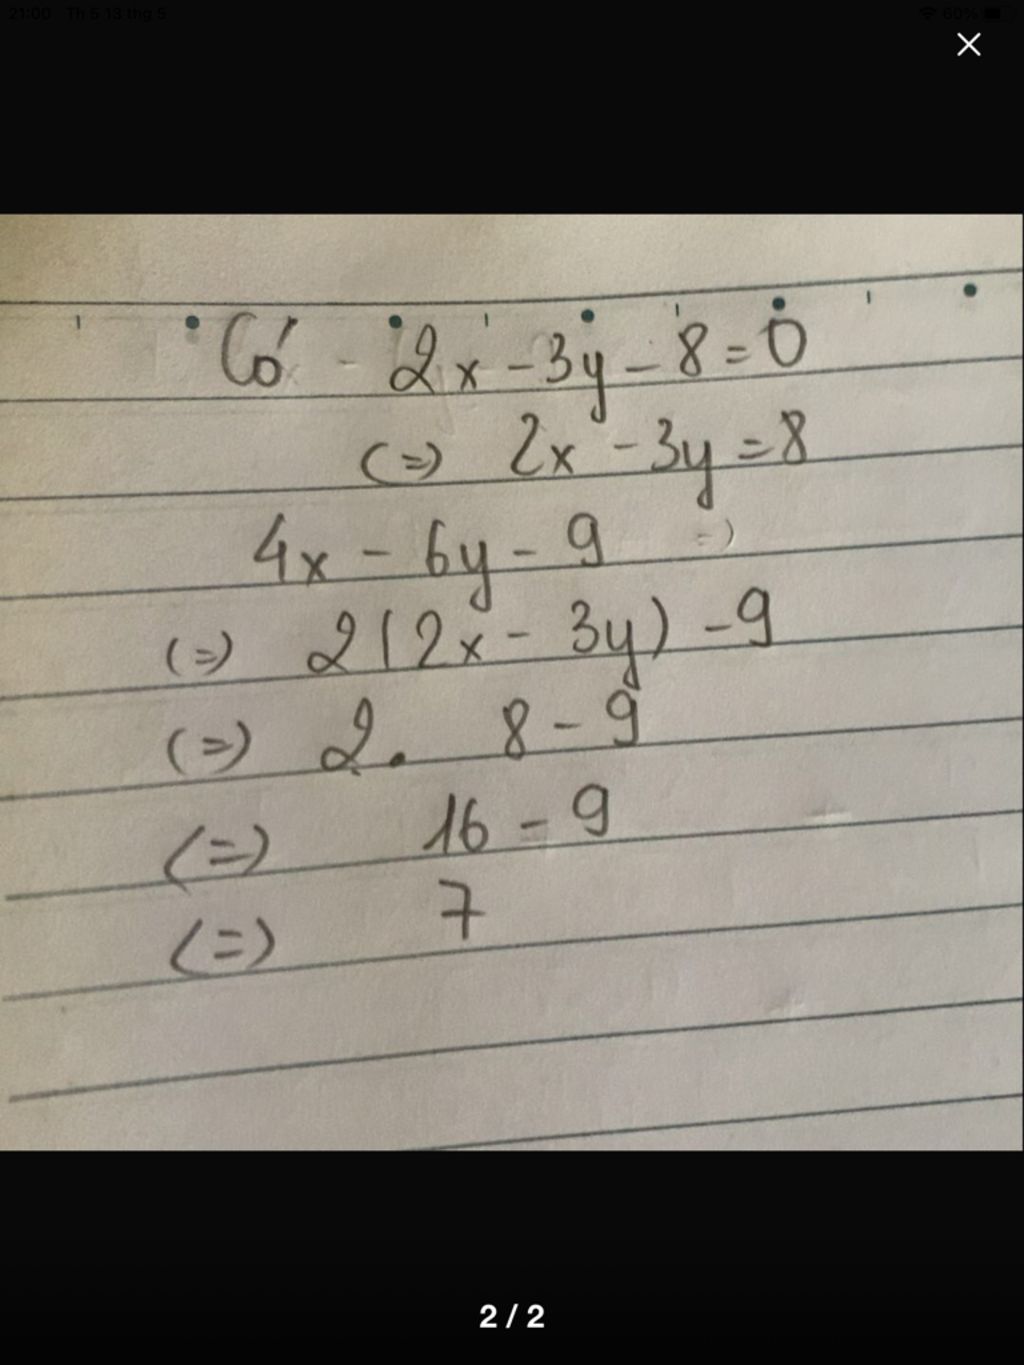 21:00 Th 5 13 thg 5 60%
Có 2x - 3y - 8 = 0
(=) 2x - 3y = 8
4x - 6y - 9 =)
(=) 2(2x - 3y) - 9
(=) 2. 8 - 9
(=) 16 - 9
(=) 7
2 / 2